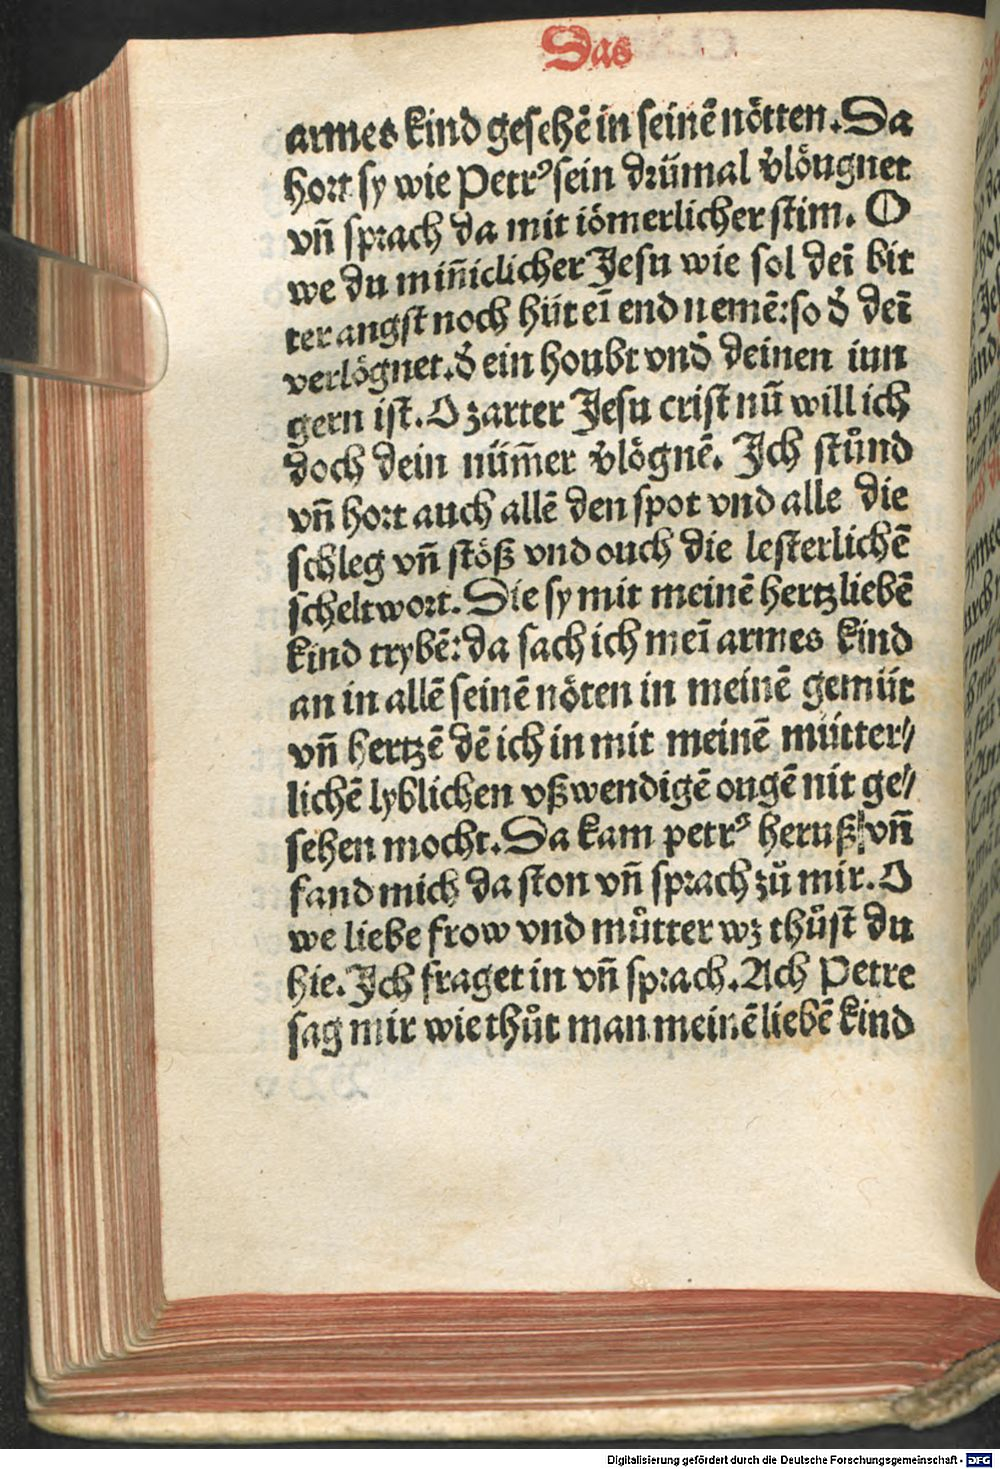 Das
armes kind gesehē in seinē nötten. Da
hort sy wie Petrꝰ sein drümal v̈löugnet
vn̄ sprach da mit iömerlicher stim. O
we du min̄iclicher Jesu wie sol deī bit
ter angst noch hüt eī end nemē: so d̕ deī
verlögnet. d̕ ein houbt vnd̕ deinen iun
gern ist. O zarter Jesu crist nū will ich
doch dein nüm̄er v̕lögnē. Ich stůnd
vn̄ hort auch allē den spot vnd alle die
schleg vn̄ stöß vnd ouch die lesterlichē
scheltwort. Die sy mit meinē hertzliebē
kind trybē: da sach ich meī armes kind
an in allē seinē nöten in meinē gemüt
vn̄ hertzē dē ich in mit meinē mütter⸗
lichē lyblichen vßwendigē ougē nit ge⸗
sehen mocht. Da kam petrꝰ heruß vn̄
fand mich da ston vn̄ sprach zů mir. O
we liebe frow vnd můtter wz thůst du
hie. Ich fraget in vn̄ sprach. Ach Petre
sag mir wie thůt man meinē liebē kind
Digitalisierung gefördert durch die Deutsche Forschungsgemeinschaft - DFG